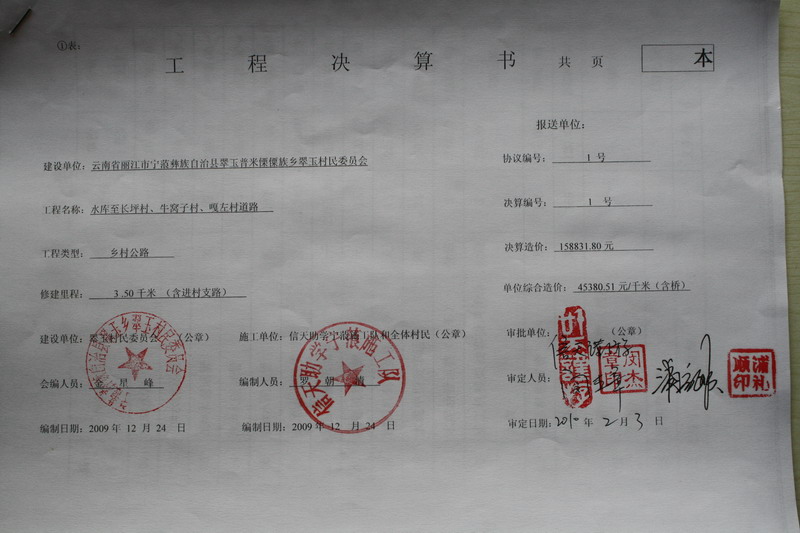 ①表:
工 程 决 算 书 共 页 本
报送单位:
建设单位: 云南省丽江市宁蒗彝族自治县翠玉普米傈僳族乡翠玉村民委员会 协议编号: 1 号
工程名称: 水库至长坪村、牛窝子村、嘎左村道路 决算编号: 1 号
工程类型: 乡村公路 决算造价: 158831.80 元
修建里程: 3.50千米 (含进村支路) 单位综合造价: 45380.51 元/千米(含桥)
建设单位: 翠玉村民委员会 (公章) 施工单位: 信天助学宁蒗施工队和全体村民(公章) 审批单位: (公章)
会编人员: 峰 编制人员: 罗 朝 审定人员:
编制日期: 2009 年 12 月 24 日 编制日期: 2009 年 12 月 24 日 审定日期: 2010 年 2 月 3 日
信天助学宁蒗施工队
闵杰章印
浦礼顺印